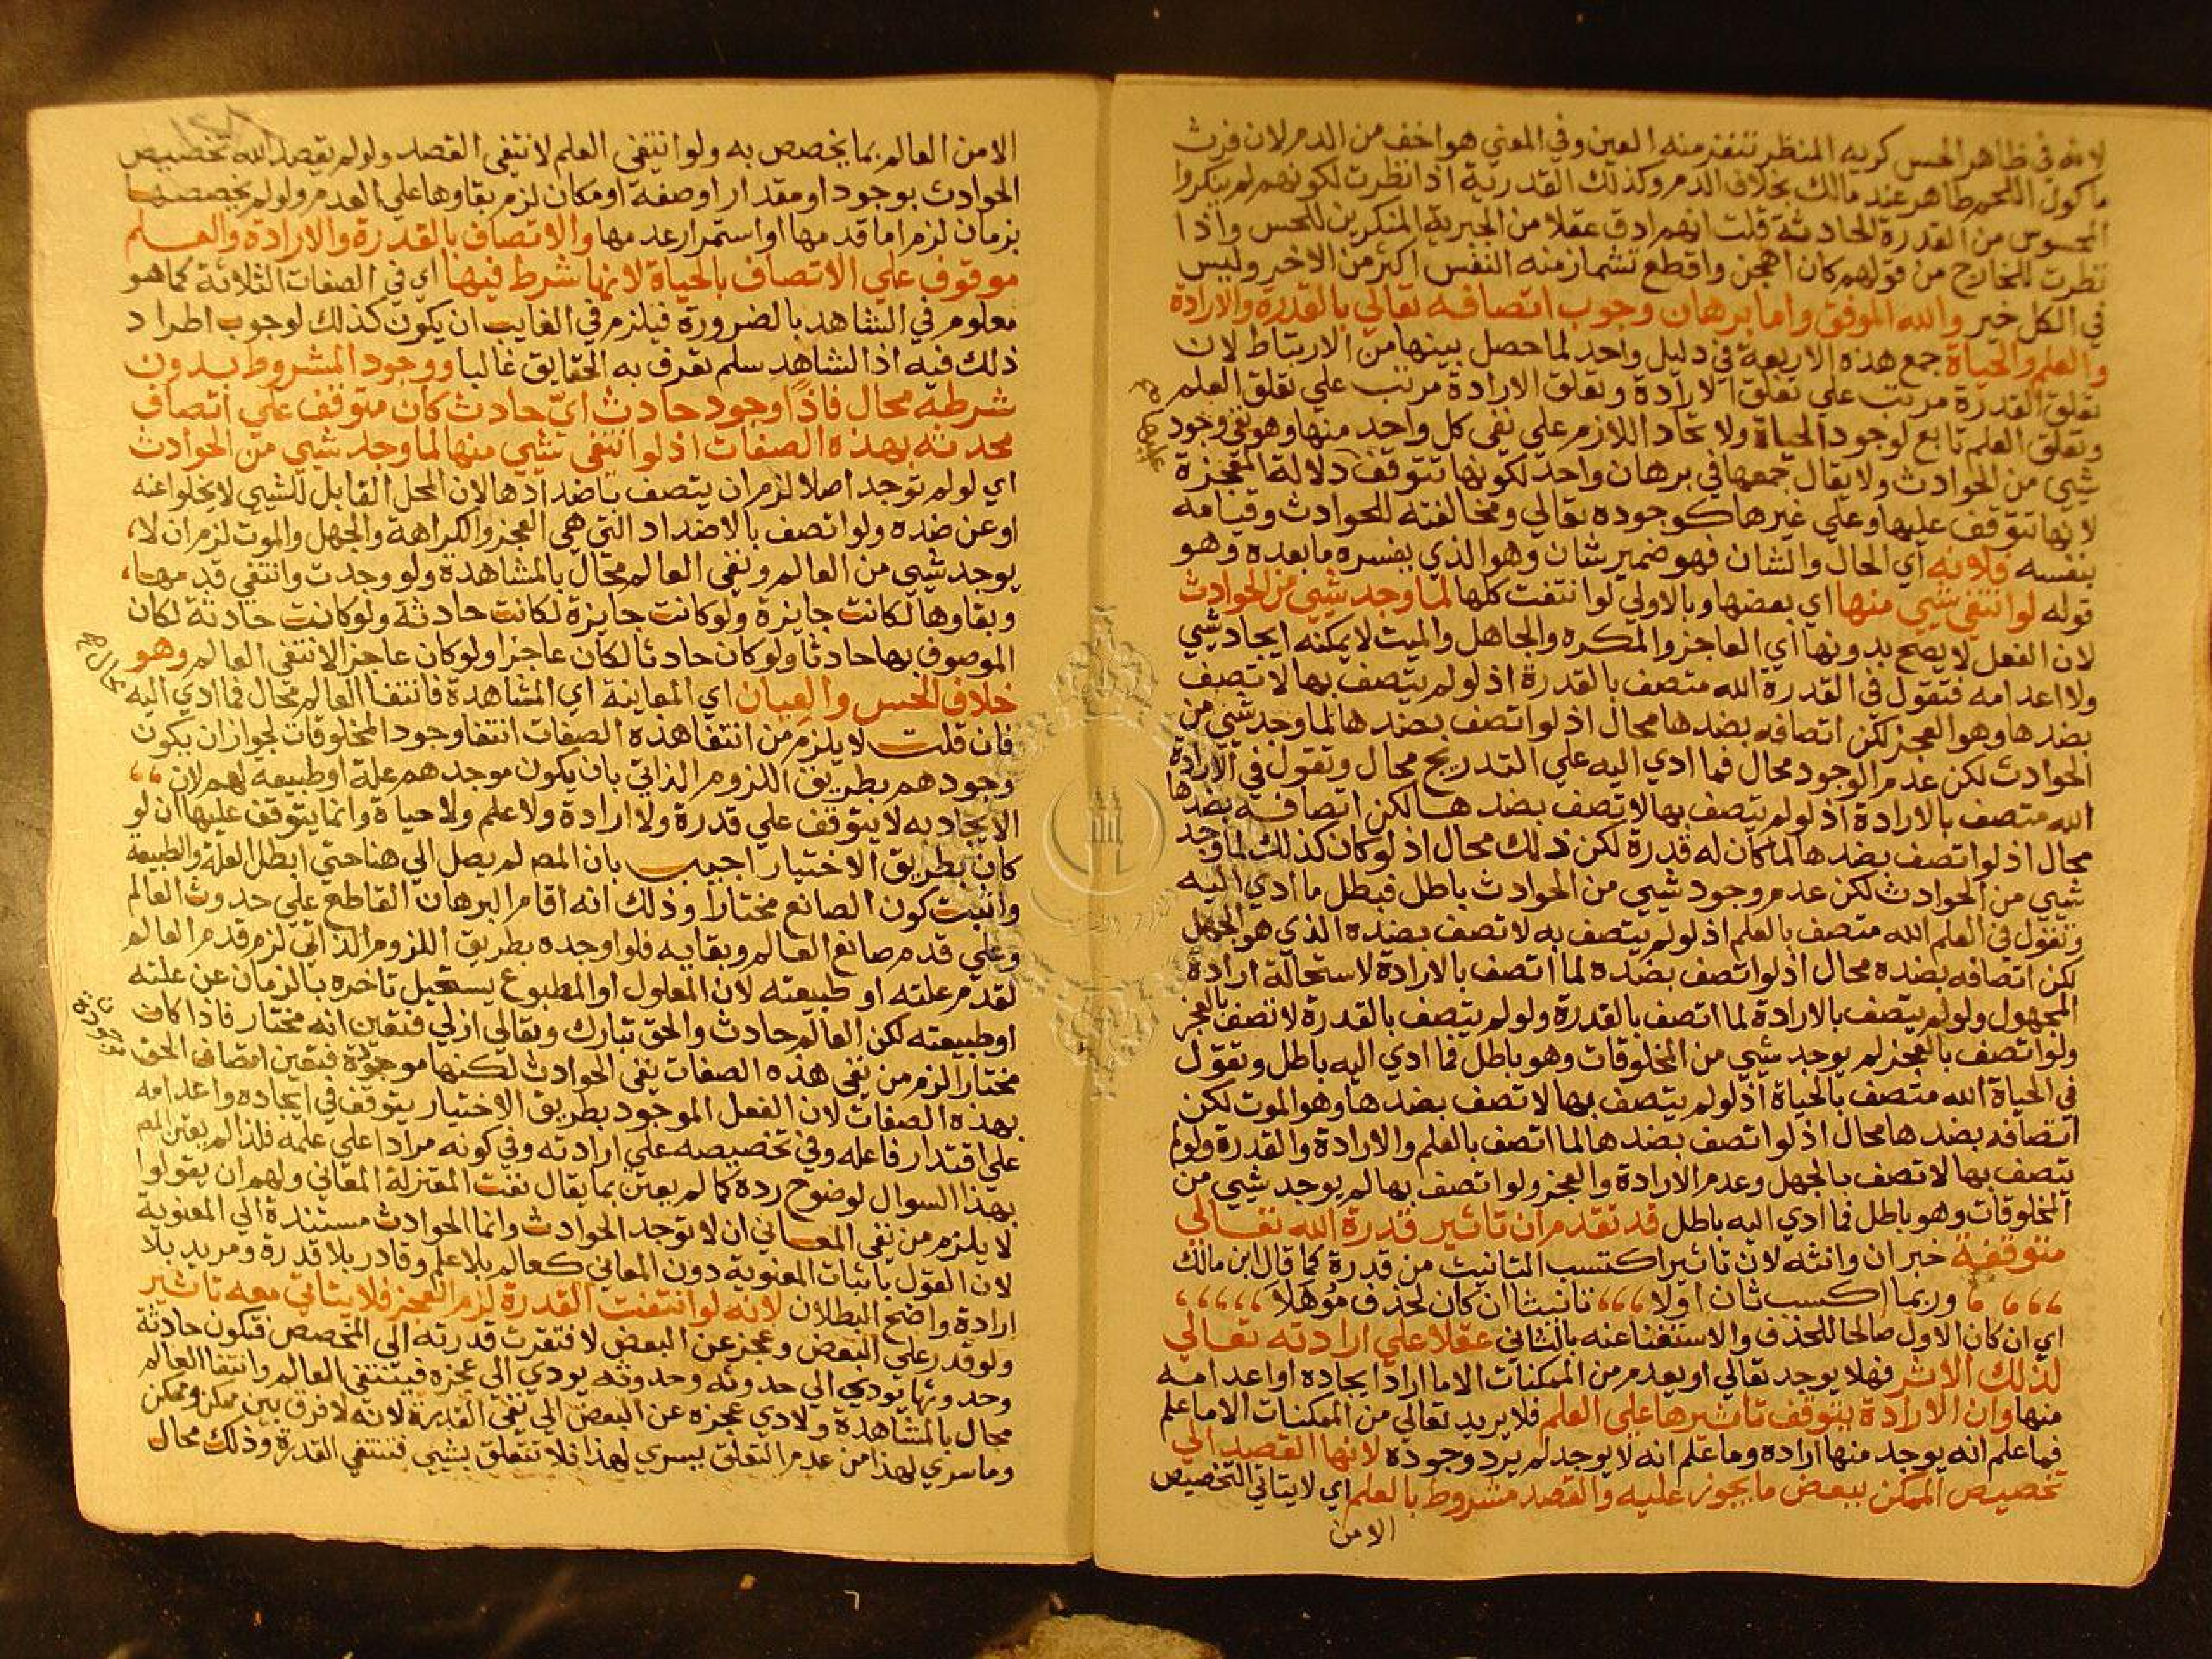 لانه في ظاهر الحس كريه المنظر تنفر منه العين وفي المعني هو اخف من الدم لان فرث
ماكول اللحم طاهر عند مالك بخلاف الدم وكذلك القدرية اذا نظرت لكونهم لم ينكروا
المحسوس من القدرة الحادثة قلت انهم ادق عقلا من الجبرية المنكرين للحس واذا
نظرت للخارج من قولهم كان اهجن واقطع تشماز منه النفس اكثر من الاخير وليس
في الكل خير والله الموفق واما برهان وجوب اتصافه تعالي بالقدرة والارادة
والعلم والحياة جمع هذه الاربعة في دليل واحد لما حصل بينها من الارتباط لان
تعلق القدرة مرتب علي تعلق الارادة وتعلق الارادة مرتب علي تعلق العلم
وتعلق العلم تابع لوجود الحياة ولاتحاد اللازم علي نفي كل واحد منها وهو نفي وجود
شيي من الحوادث ولا يقال جمعها في برهان واحد لكونها تتوقف دلالة المعجزة
عليها
لانها تتوقف عليها وعلي غيرها كوجوده تعالي ومخالفته للحوادث وقيامه
بنفسه فلانه اي الحال والشان فهو ضمير شان وهو الذي يفسره ما بعده وهو
قوله لو انتفي شيي منها اي بعضها وبالاولي لو انتفت كلها لما وجد شيي من الحوادث
لان الفعل لا يصح بدونها اي العاجز والمكره والجاهل والميت لا يمكنه ايجاد شيي
ولا اعدامه فتقول في القدرة الله متصف بالقدرة اذ لو لم يتصف بها لاتصف
بضدها وهو العجز لكن اتصافه بضدها محال اذ لو اتصف بضدها لما وجد شيي من
الحوادث لكن عدم الوجود محال فما ادي اليه علي التدريج محال وتقول في الارادة
الله متصف بالارادة اذ لو لم يتصف بها لاتصف بضدها لكن اتصافه بضدها
محال اذ لو اتصف بضدها لما كان له قدرة لكن ذلك محال اذ لو كان كذلك لما وجد
شيي من الحوادث لكن عدم وجود شيي من الحوادث باطل فبطل ما ادي اليه
وتقول في العلم الله متصف بالعلم اذ لو لم يتصف به لاتصف بضده الذي هو الجهل
لكن اتصافه بضده محال اذ لو اتصف بضده لما اتصف بالارادة لاستحالة ارادة
المجهول ولو لم يتصف بالارادة لما اتصف بالقدرة ولو لم يتصف بالقدرة لاتصف بالعجز
ولو اتصف بالعجز لم يوجد شيي من المخلوقات وهو باطل فما ادي اليه باطل وتقول
في الحياة الله متصف بالحياة اذ لو لم يتصف بها لاتصف بضدها وهو الموت لكن
اتصافه بضدها محال اذ لو اتصف بضدها لما اتصف بالعلم والارادة والقدرة ولو لم
يتصف بها لاتصف بالجهل وعدم الارادة والعجز ولو اتصف بها لم يوجد شيي من
المخلوقات وهو باطل فما ادي اليه باطل قد تقدم ان تاثير قدرة الله تعالي
متوقفة خبر ان وانثه لان تاثير اكتسب التانيث من قدرة كما قال ابن مالك
وربما اكسب ثان اولا تانيثا ان كان لحذف موهلا
اي ان كان الاول صالحا للحذف والاستغنا عنه بالثاني عقلا علي ارادته تعالي
لذلك الاثر فهلا يوجد تعالي او يعدم من الممكنات الا ما اراد ايجاده او اعدامه
منها وان الارادة يتوقف تاثيرها علي العلم فلا يريد تعالي من الممكنات الا ما علم
فما علم انه يوجد منها اراده وما علم انه لا يوجد لم يرد وجوده لانها القصد الي
تخصيص الممكن ببعض ما يجوز عليه والقصد مشروط بالعلم اي لا يتاتي التخصيص
الا من
الا من العالم بما يخصص به ولو انتفي العلم لانتفي القصد ولو لم يقصد الله تخصيص
الحوادث بوجود او مقدار او صفة او مكان لزم بقاوها علي العدم ولو لم يخصصها
بزمان لزم اما قدمها او استمرار عدمها والاتصاف بالقدرة والارادة والعلم
موقوف علي الاتصاف بالحياة لانها شرط فيها اي في الصفات الثلاثة كما هو
معلوم في الشاهد بالضرورة فيلزم في الغايب ان يكون كذلك لوجوب اطراد
ذلك فيه اذ الشاهد سلم تعرف به الحقايق غالبا ووجود المشروط بدون
شرطه محال فاذا وجود حادث اي حادث كان متوقف علي اتصاف
محدثه بهذه الصفات اذ لو انتفي شيي منها لما وجد شيي من الحوادث
اي لو لم توجد اصلا لزم ان يتصف باضدادها لان المحل القابل للشيي لا يخلو عنه
او عن ضده ولو اتصف بالاضداد التي هي العجز والكراهة والجهل والموت لزم ان لا
يوجد شيي من العالم ونفي العالم محال بالمشاهدة ولو وجدت وانتفي قدمها
وبقاوها لكانت جايزة ولو كانت جايزة لكانت حادثة ولو كانت حادثة لكان
الموصوف بها حادثا ولو كان حادثا لكان عاجزا ولو كان عاجزا لانتفي العالم وهو
محال
خلاف الحس والعيان اي المعاينة اي المشاهدة فانتفا العالم محال فما ادي اليه
فان قلت لا يلزم من انتفا هذه الصفات انتفا وجود المخلوقات لجواز ان يكون
وجودهم بطريق اللزوم الذاتي بان يكون موجدهم علة او طبيعة لهم لان
الايجاد به لا يتوقف علي قدرة ولا ارادة ولا علم ولا حياة وانما يتوقف عليها ان لو
كان بطريق الاختيار اجيب بان المصم لم يصل الي هنا حتي ابطل العلة والطبيعة
واثبت كون الصانع مختارا وذلك انه اقام البرهان القاطع علي حدوث العالم
وعلي قدم صانع العالم وبقايه فلو اوجده بطريق اللزوم الذاتي لزم قدم العالم
لقدم علته او طبيعته لان المعلول او المطبوع يستحيل تاخره بالزمان عن علته
او طبيعته لكن العالم حادث والحق تبارك وتعالي ازلي فتعين انه مختار فاذا كان
مختارا لزم من نفي هذه الصفات نفي الحوادث لكنها موجودة فتعين اتصاف الحق
بهذه الصفات لان الفعل الموجود بطريق الاختيار يتوقف في ايجاده واعدامه
علي اقتدار فاعله وفي تخصيصه علي ارادته وفي كونه مرادا علي علمه فلذا لم يعتن المصم
بهذا السوال لوضوح رده كما لم يعتن بما يقال نفت المعتزلة المعاني ولهم ان يقولوا
لا يلزم من نفي المعاني ان لا توجد الحوادث وانما الحوادث مستندة الي المعنوية
لان القول باثبات المعنوية دون المعاني كعالم بلا علم وقادر بلا قدرة ومريد بلا
ارادة واضح البطلان لانه لو انتفت القدرة لزم العجز فلا يتاتي معه تاثير
ولو قدر علي البعض وعجز عن البعض لافتقرت قدرته الي المخصص فتكون حادثة
وحدوثها يودي الي حدوثه وحدوثه يودي الي عجزه فينتفي العالم وانتفا العالم
محال بالمشاهدة ولادي عجزه عن البعض الي نفي القدرة لانه لا فرق بين ممكن وممكن
وما سري لهذا من عدم التعلق يسري لهذا فلا تتعلق بشيي فتنتفي القدرة وذلك محال